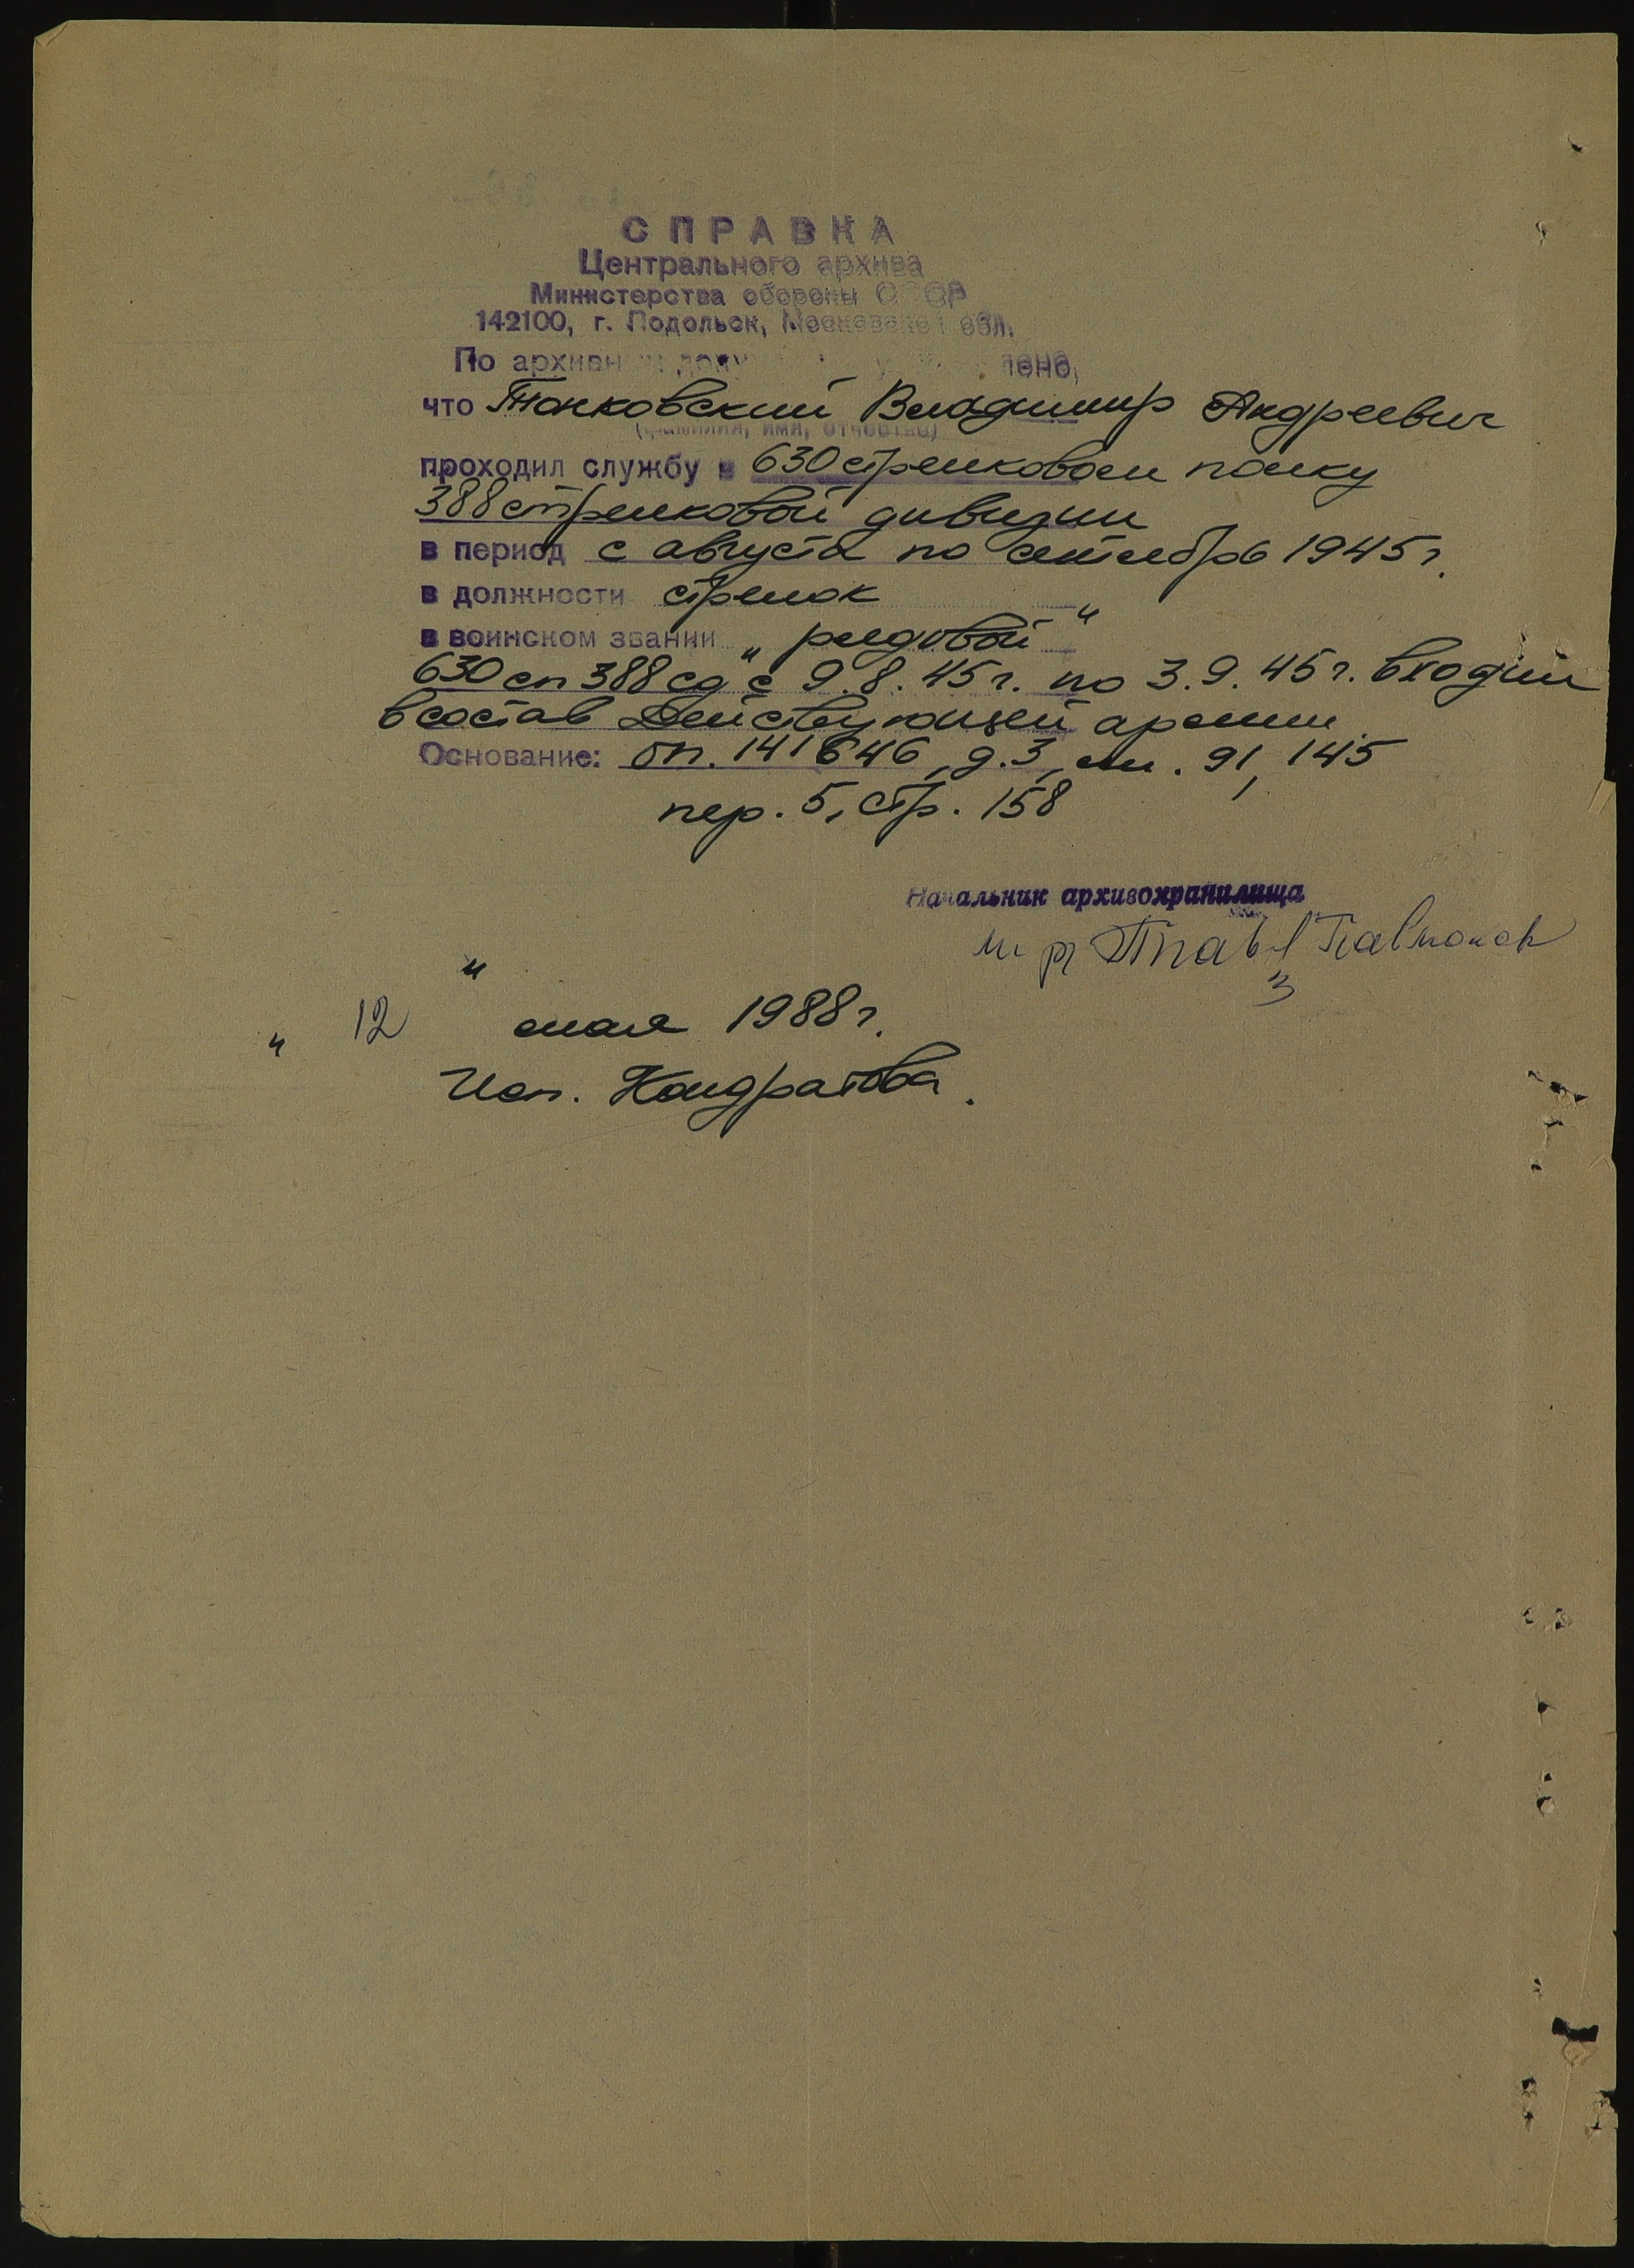 СПРАВКА
Центрального архива
Министерства обороны СССР
142100, г. Подольск, Московской обл.
По архивным документам установлено,
что Танковский Владимир Андреевич
(фамилия, имя, отчество)
проходил службу в 630 стрелковом полку
388 стрелковой дивизии
в период с августа по сентябрь 1945 г.
в должности стрелок
в воинском звании „рядовой"
630 сп 388 сд с 9.8.45 г. по 3.9.45 г. входил
в состав Действующей армии.
Основание: оп. 141646, д. 3, лл. 91, 145
пер. 5, стр. 158
Начальник архивохранилища
„12" мая 1988 г.
Исп. Кондратова.